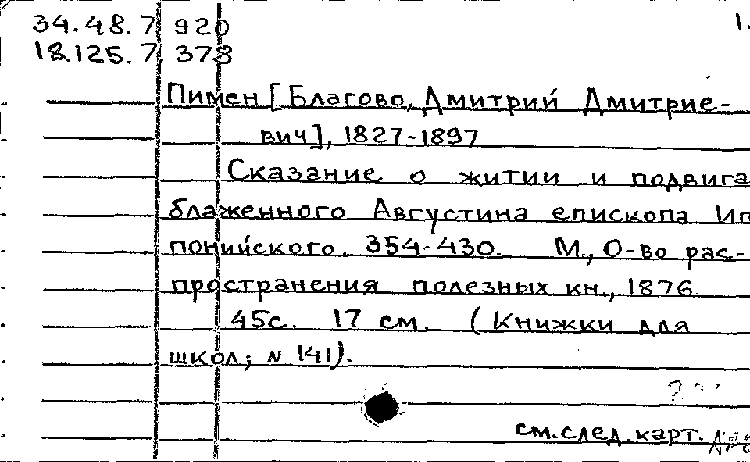 34.48.7 920 1.
18.125.7 378
Пимен [Благово, Дмитрий Дмитрие-
вич], 1827-1897
Сказание о житии и подвига
блаженного Августина епископа Ип
понийского. 354-430. М., О-во рас-
пространения полезных кн., 1876
45с. 17 см. (Книжки для
школ; N 141).
см. след. карт.